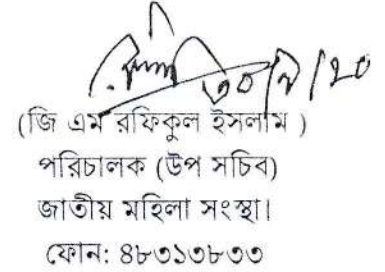 (জি এম রফিকুল ইসলাম )
পরিচালক (উপ সচিব)
জাতীয় মহিলা সংস্থা।
ফোন: ৪৮৩১৩৮৩৩